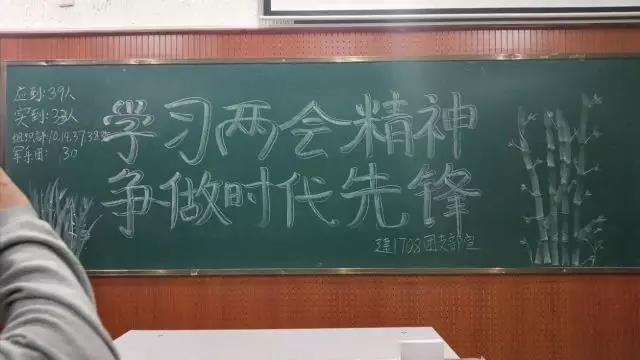 应到:39人
实到:33人
组织部:10.14.37.38
军乐团: 30
学习两会精神
争做时代先锋
建1703团支部宣